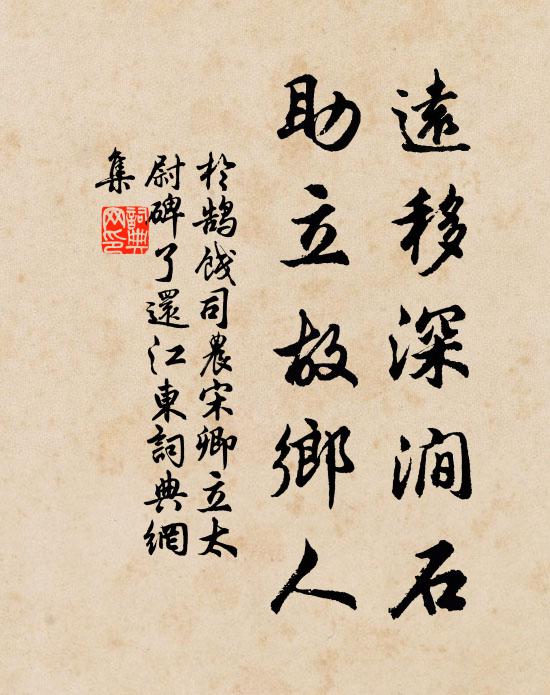 遠移深澗石
助立故鄉人
於鵠餞司農宋卿立太
尉碑了還江東詞典網
集
詞典
网印